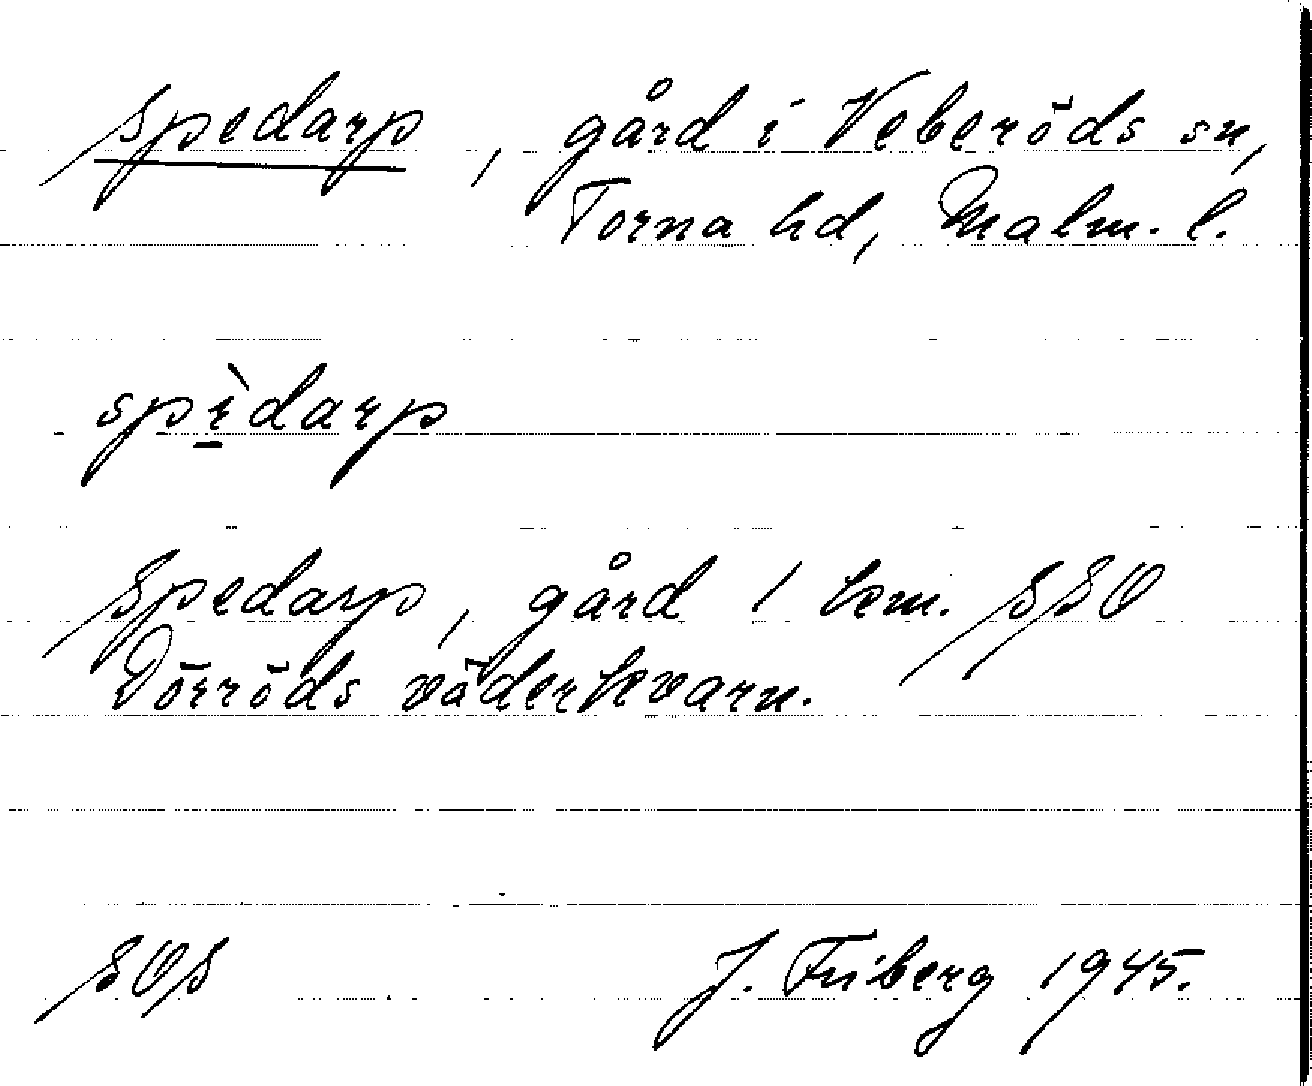 Spedarp, gård i Veberöds sn,
Torna hd, Malm. l.
spì̱darp
Spedarp, gård 1 km. SSO
Dörröds väderkvarn.
SOS J. Friberg 1945.